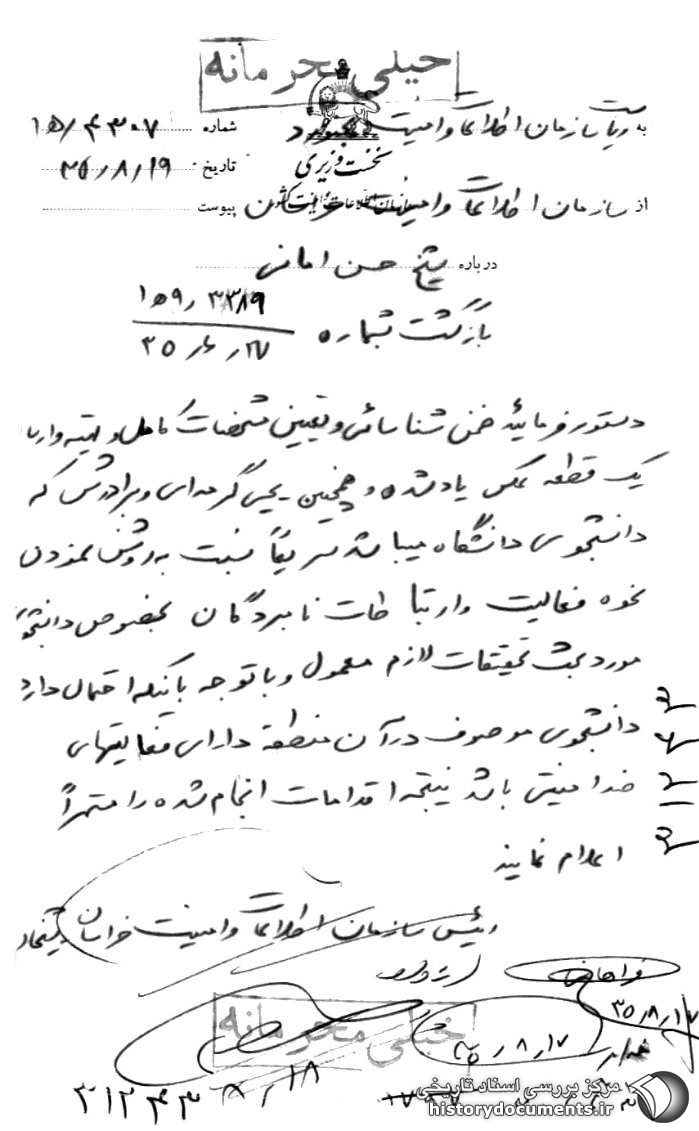 خیلی محرمانه
به ریاست سازمان اطلاعات و امنیت بجنورد
شماره ۱۵/۴۳۰۷
نخست وزیری
تاریخ ۳۵/۸/۱۹
سازمان اطلاعات و امنیت کشور
از سازمان اطلاعات و امنیت خراسان
پیوست
درباره شیخ حسن امانی
بازگشت بشماره
دستور فرمائید ضمن شناسائی و تعیین مشخصات کامل و تهیه
یک قطعه عکس یاد شده و همچنین یحیی گرمه‌ای و برادرش که
دانشجوی دانشگاه میباشد سریعاً نسبت به روشن نمودن
نحوه فعالیت و ارتباطات نامبردگان بخصوص دانشجوی
مورد بحث تحقیقات لازم معمول و با توجه باینکه احتمال دارد
دانشجوی موصوف در آن منطقه دارای فعالیتهای
ضد امنیتی باشد نتیجه اقدامات انجام شده را مستمراً
اعلام نمایند
رئیس سازمان اطلاعات و امنیت خراسان شیخان
۳۵/۸/۱۷
۳۵/۸/۱۷
خیلی محرمانه
۸/۱۸
۳۱۲۴۳
مرکز بررسی اسناد تاریخی
historydocuments.ir